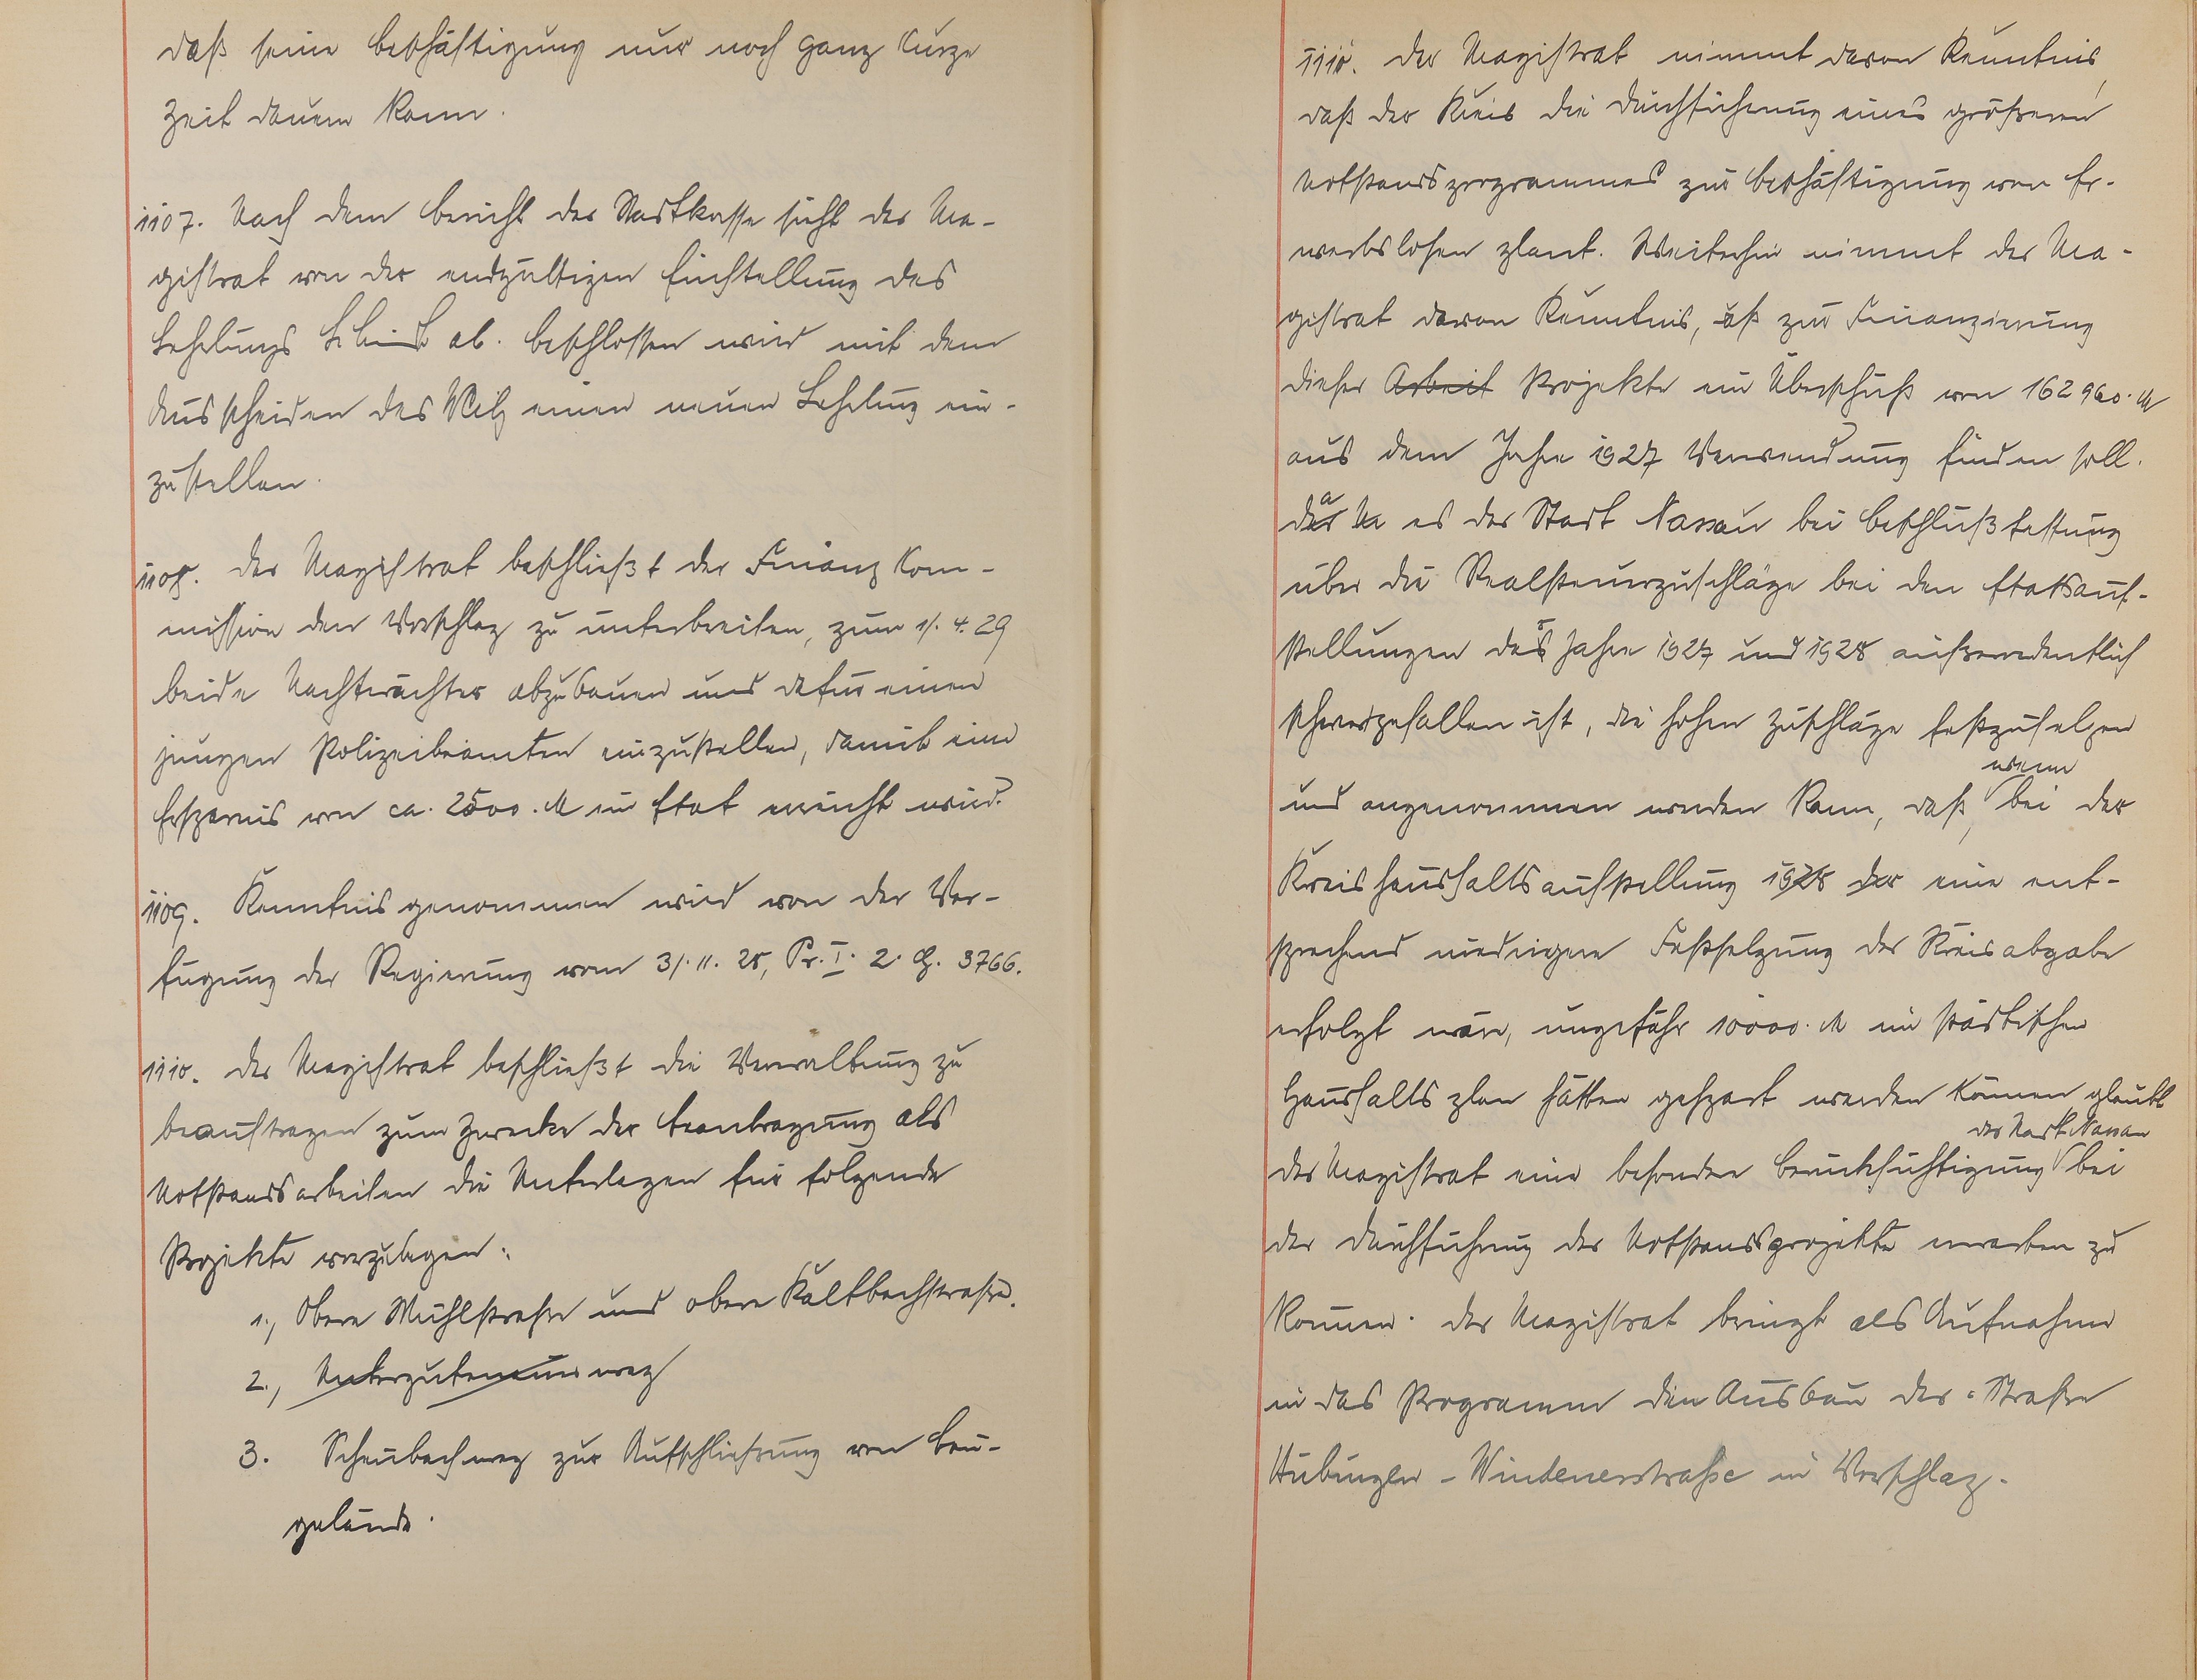 daß seine Beschäftigung nur noch ganz kurze
Zeit dauern kann.
1107. Nach dem Bericht der Stadtkasse sieht der Ma-
gistrat von der endgültigen Einstellung des
Lehrlings ab. Beschlossen wird mit dem
Ausscheiden des einen neuen Lehrling ein-
zustellen.
1108. Der Magistrat beschließt der Finanz Kom-
mission den Vorschlag zu unterbreiten, zum 1/. 4. 29
beide Nachtwächter abzubauen und dafür einen
jungen Polizeibeamten einzustellen, damit eine
Ersparnis von ca. 2500. M im Etat erreicht wird.
1109. Kenntnis genommen wird von der Ver-
fügung der Regierung vom 3/. 11. 28, Pr. I. 2. G. 3766.
1110. Der Magistrat beschließt die Verwaltung zu
beauftragen zum Zwecke der Beantragung als
Notstandsarbeiten die Unterlagen für folgende
Projekte vorzulegen:
1., Obere Mühlstraße und obere Kaltbachstraße.
2.,
3. Scheubachweg zur Aufschließung von Bau-
gelände.
1110. Der Magistrat nimmt davon Kenntnis,
daß der Kreis die Durchführung eines größeren
Notstandsprogrammes zur Beschäftigung von Er-
werbslosen plant. Weiterhin nimmt der Ma-
gistrat davon Kenntnis, daß zur Finanzierung
dieser Arbeit Projekte ein Überschuß von 162 960. M
aus dem Jahre 1927 Verwendung finden soll.
Da es der Stadt Nassau bei Beschlußfassung
über die Realsteuerzuschläge bei den Etatsauf-
stellungen der Jahre 1927 und 1928 außerordentlich
schwergefallen ist, die hohen Zuschläge festzusetzen
und angenommen werden kann, daß, wenn bei der
Kreishaushaltsaufstellung 1928 der eine ent-
sprechend niedrigere Festsetzung der Kreisabgabe
erfolgt wäre, ungefähr 10000. M im städtischen
Haushaltsplan hätten gespart werden können glaubt
der Magistrat eine besondere Berücksichtigung der Stadt Nassau bei
der Durchführung der Notstandsprojekte erwarten zu
können. Der Magistrat bringt als Aufnahme
in das Programm den Ausbau der Straße
Hübingen - Windenerstraße in Vorschlag.